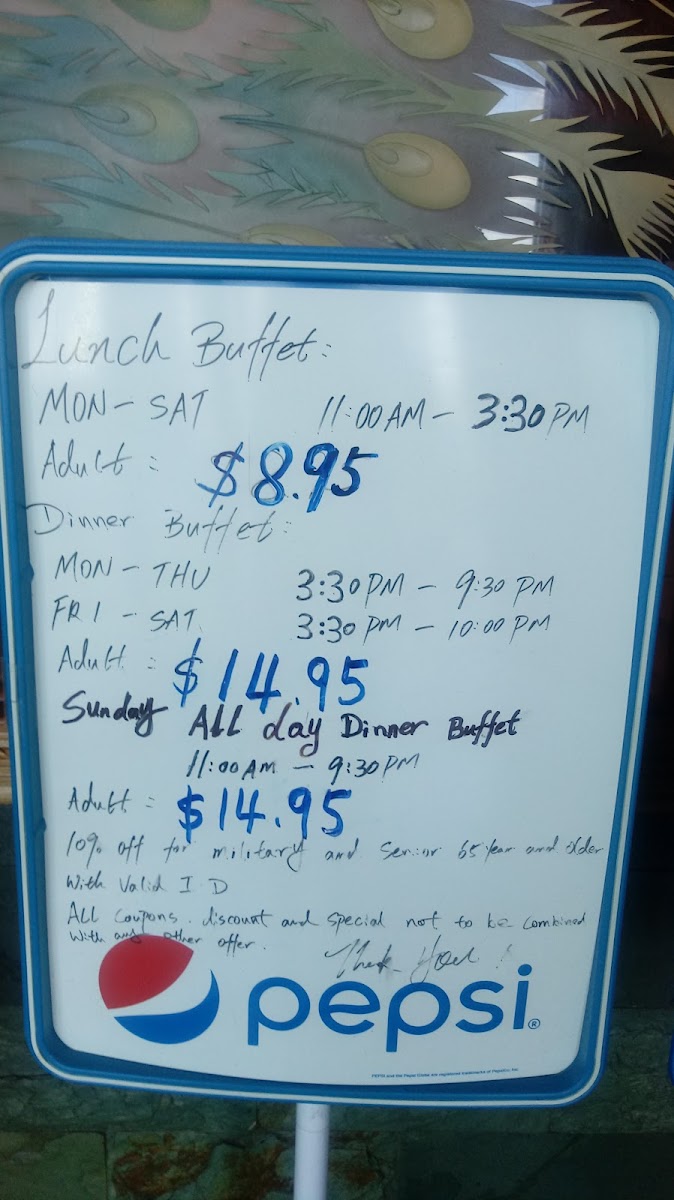 Lunch Buffet:
MON - SAT 11:00 AM - 3:30 PM
Adult : $8.95
Dinner Buffet:
MON - THU 3:30 PM - 9:30 PM
FRI - SAT 3:30 PM - 10:00 PM
Adult : $14.95
Sunday All day Dinner Buffet
11:00 AM - 9:30 PM
Adult : $14.95
10% off for military and Senior 65 year and older
With Valid I D
All Coupons. discount and special not to be combined
With any other offer. Thank You!
pepsi®
PEPSI and the Pepsi Globe are registered trademarks of PepsiCo, Inc.